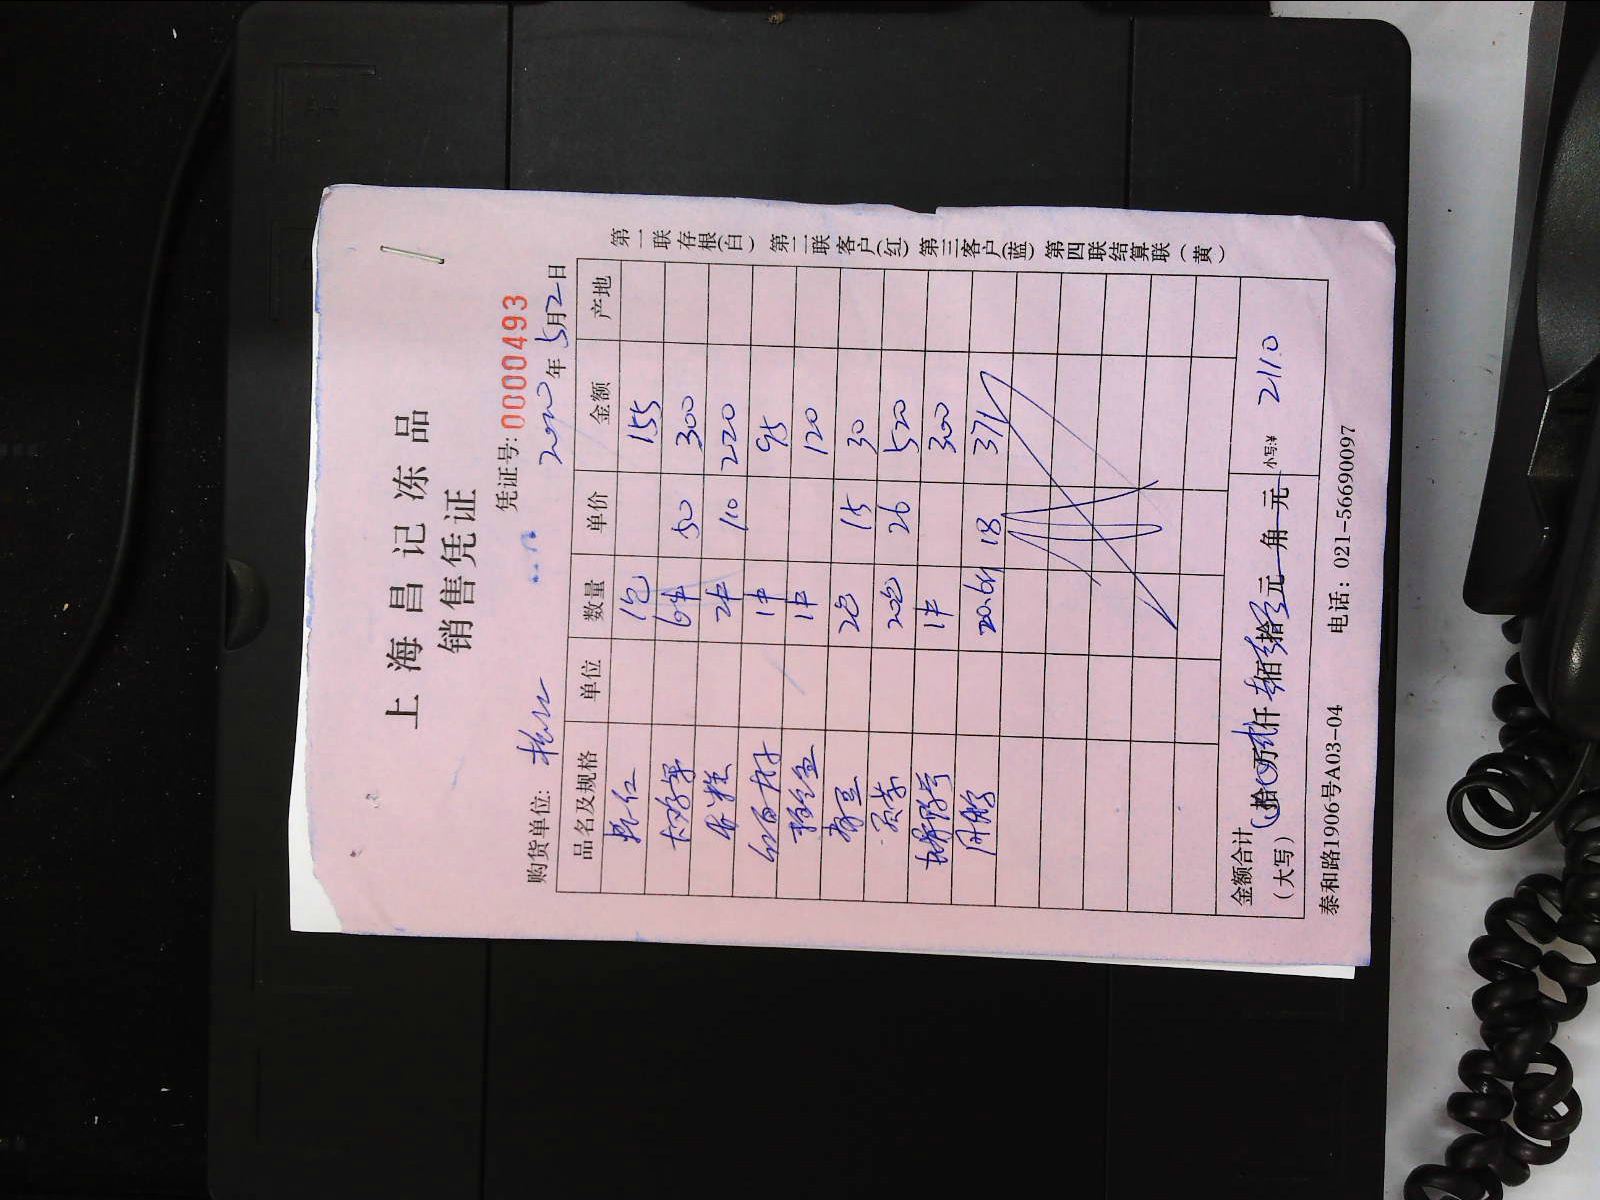 上海昌记冻品
销售凭证
凭证号: 0000493
购货单位: 2020年5月2日
品名及规格 单位 数量 单价 金额 产地
虾仁 1包 155
6中 50 300
年糕 2中 110 220
1中 95
1中 120
2包 15 30
20包 26 520
1中 300
20.6斤 18 371
金额合计(大写) 拾万贰仟壹佰壹拾零元 角 元 小写:¥ 2110
泰和路1906号A03-04 电话: 021-56690097
第一联存根(白) 第二联客户(红) 第三客户(蓝) 第四联结算联(黄)